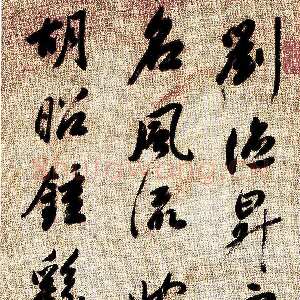 劉德昇
名風流
胡昭鍾繇